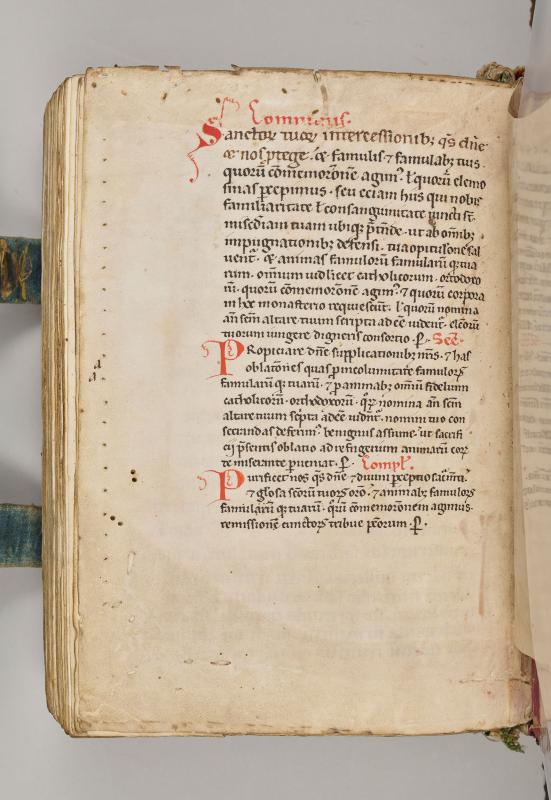 Sanctor tuor intercessionib; qs dne
& nos ptege. & famulis ⁊ famulab; tuis.
quoru comemorone agim. l quoru elemo
sinas pcepimus. seu eciam hiis qui nobis
familiaritate l consanguinitate iuncti st.
misediam tuam ubiq; ptende. ut ab omib;
impugnationib; defensi. tua opitulone sal
uent. & animas famuloru famularu q; tua
rum. omnium uidlicet catholicorum. ortodoxo
ru. quoru comemorone agim. ⁊ quoru corpora
in hoc monasterio requiescut. l quoru nomina
an scm altare tuum scripta adee uident. electoru
tuorum iungere digneris consortio. P. Sec.
PRopiciare dne supplicationib; nris. ⁊ has
oblatones quas p incolumitate famulor
famularu q; tuaru. ⁊ p animab; omniu fidelium
catholicoru. orthodoxoru. quor nomina an scm
altare tuum scipta adee uident. nomini tuo con
secrandas deferim. benignus assume. ut sacrifi
cii psentis oblatio ad refrigerium animaru eor
te miserante pueniat. P. Compl.
Purificet nos qs dne ⁊ diuini pceptio sacmti.
⁊ glosa scoru tuor oro. ⁊ animab; famulor
famularu q; tuaru. quru comemoronem agimus.
remissione cunctor tribue pcorum. P.